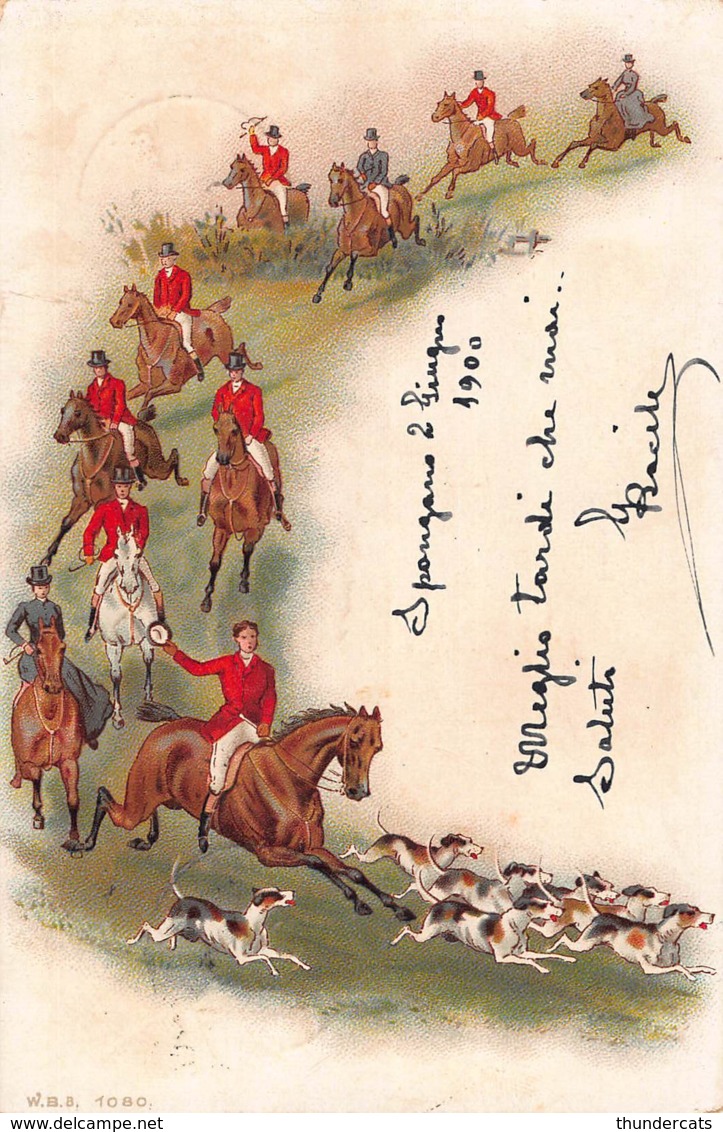 Spongano 2 Giugno
1900
Meglio tardi che mai..
Saluti
W.B.B. 1080.
thundercats